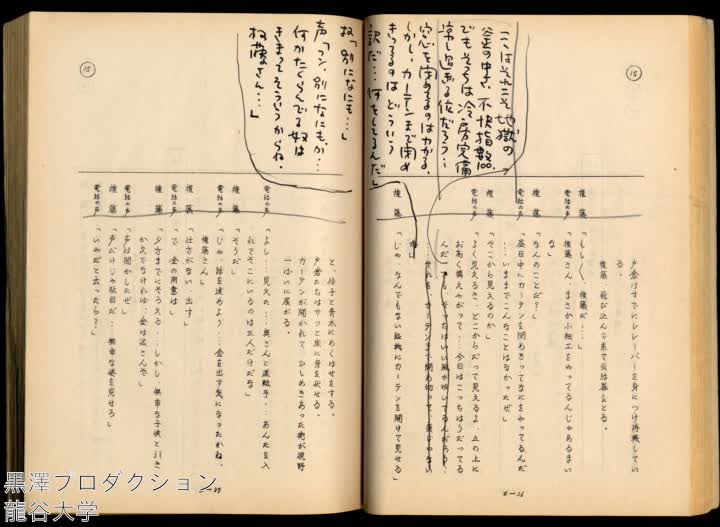 15
ここはそれこそ地獄の
釜の中さ、不快指数100.
でもそっちは冷房完備
窓を閉めてるのはわかる、
しかし、カーテンまで閉め
きってるのはどういう
訳だ…何をしてるんだ」
戸倉はすでにレシーバーを身につけ待機してい
る。
権藤、飛び込んで来て受話器をとる。
権藤「もし〳〵、権藤だ…」
電話の声「権藤さん、まさか小細工をやってるんじゃあるまい
な」
権藤「なんのことだ?」
電話の声「昼日中にカーテンを閉めきってなにをやってるんだ
…いままでこんなことはなかったぜ」
権藤「そこから見えるのか」
電話の声「よく見えるさ、どこからだって見えるよ、丘の上に
お高く構えやがって…今日はこっちはうだってる
んだ
権藤「じゃ、なんでもない証拠にカーテンを開けて見せる」
8—26
15
权「別になにも…」
声「フン、別になにもか…
何かたくらんでる奴は
きまってそういうからね.
权藤さん…」
と、伶子と青木にめくばせをする。
戸倉たちはサッと床に身を伏せる。
カーテンが開かれて、ひしめきあった街が視野
一ぱいに展がる。
電話の声「よし…見えた…奥さんと運転手…あんたを入
れてそこにいるのは三人だけだな」
権藤「そうだ」
電話の声「じゃ、話を進めよう…金を出す気になったかね、
権藤さん」
権藤「仕方がない、出す」
電話の声「で、金の用意は」
権藤「夕方までにそろえる…しかし、無事な子供と引き
かえでなければ、金は渡さんぞ」
電話の声「声は聞かしたぜ」
権藤「声だけじゃ駄目だ…無事な姿を見せろ」
電話の声「いやだと云ったら?」
黒澤プロダクション
龍谷大学